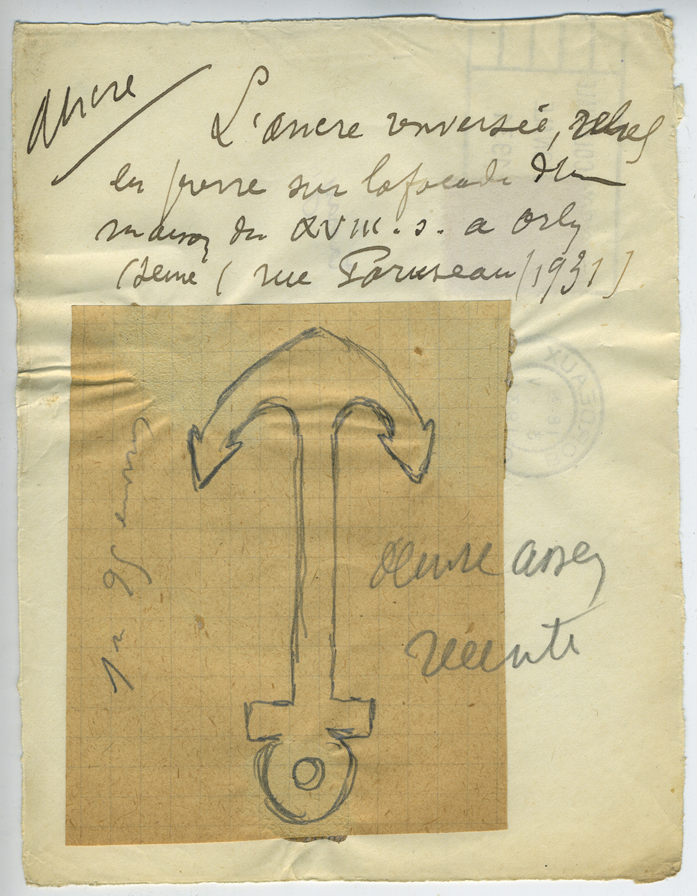 ancre
L'ancre renversée, relief
en pierre sur la façade d'une
maison du XVIII. s. a Orly
(Seine ( rue Parmseau (1931)
1m 95 environ
Oeuvre assez
récente
BORDEAUX